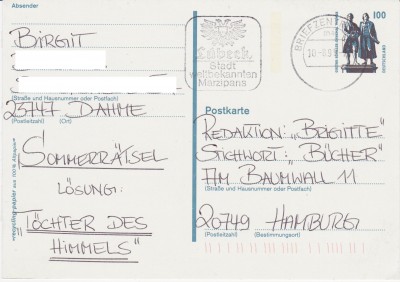 Absender
BIRGIT
(Straße und Hausnummer oder Postfach)
23747 DAHME
(Postleitzahl) (Ort)
SOMMERRÄTSEL
LÖSUNG:
"TÖCHTER DES
HIMMELS"
Lübeck.
Stadt
weltbekannten
Marzipans
BRIEFZENT
100
DEUTSCHLAND
Postkarte
REDAKTION: „BRIGITTE"
STICHWORT: „BÜCHER"
AM BAUMWALL 11
(Straße und Hausnummer oder Postfach)
20749 HAMBURG
(Postleitzahl) (Bestimmungsort)